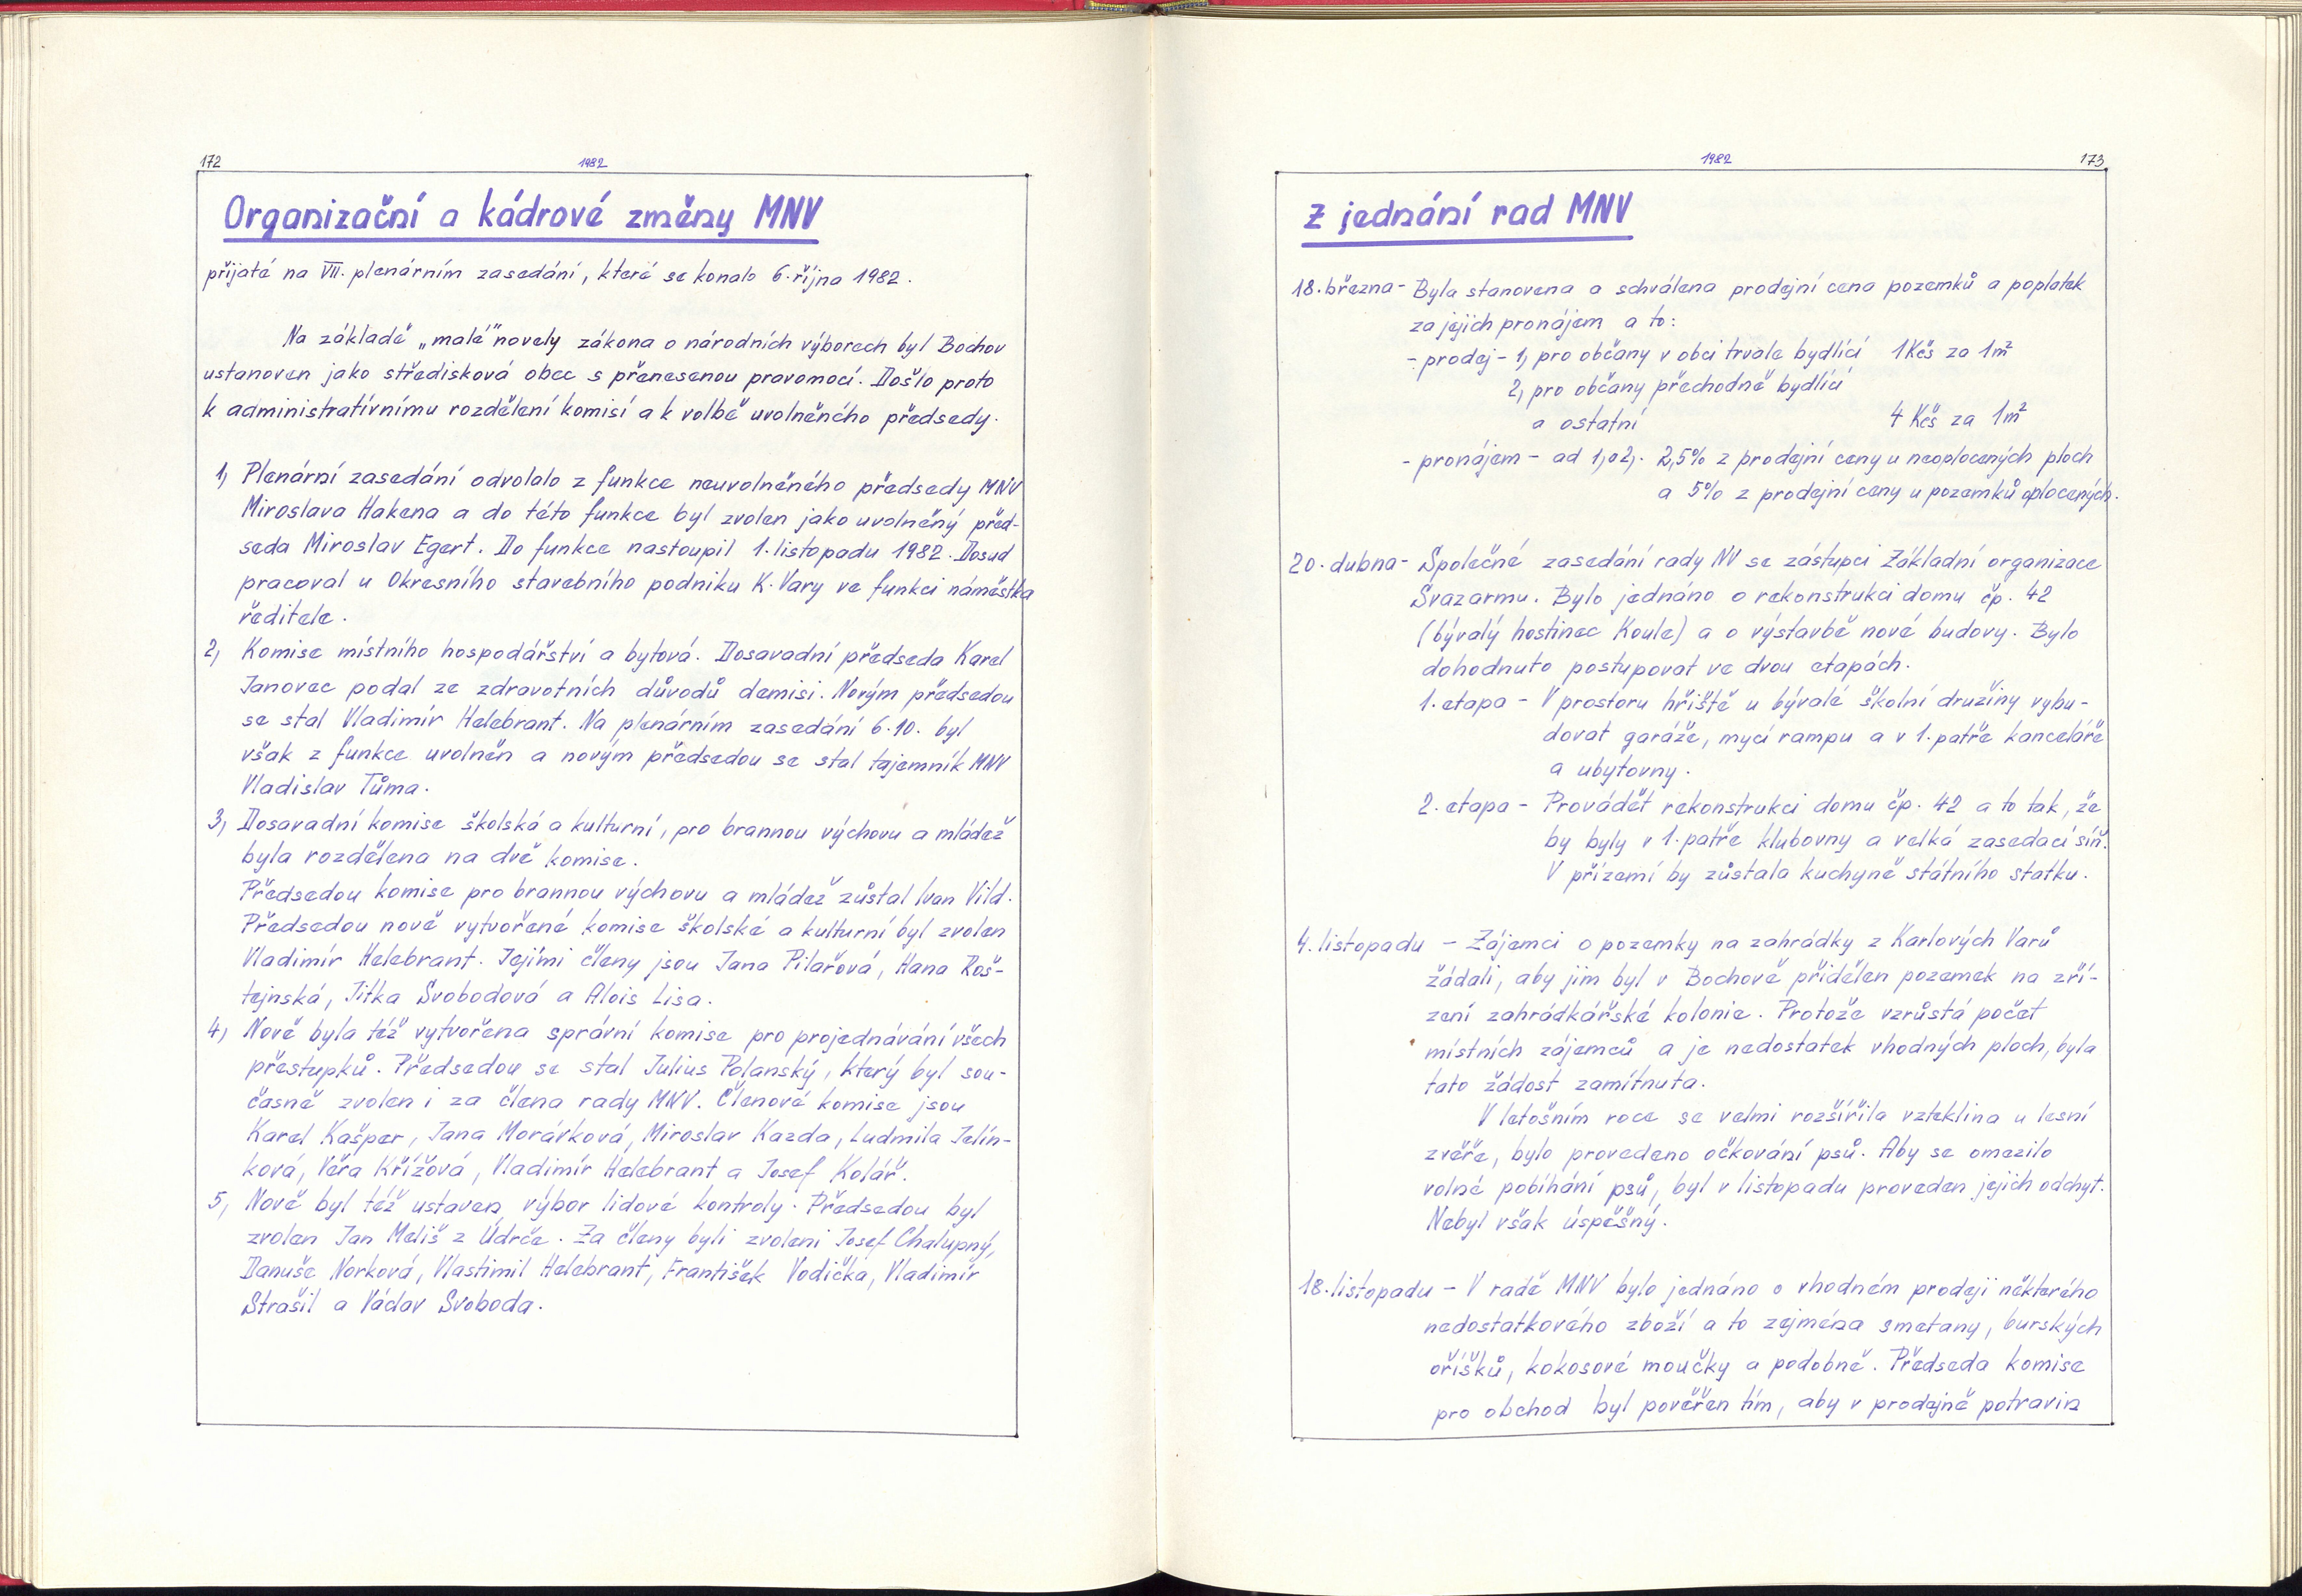 172
1982
Organizační a kádrové změny MNV
přijaté na VII. plenárním zasedání, které se konalo 6. října 1982.
Na základě „malé" novely zákona o národních výborech byl Bochov
ustanoven jako středisková obec s přenesenou pravomocí. Došlo proto
k administratívnímu rozdělení komisí a k volbě uvolněného předsedy.
1, Plenární zasedání odvolalo z funkce neuvolněného předsedy MNV
Miroslava Hakena a do této funkce byl zvolen jako uvolněný před-
seda Miroslav Egert. Do funkce nastoupil 1. listopadu 1982. Dosud
pracoval u Okresního stavebního podniku K. Vary ve funkci náměstka
ředitele.
2, Komise místního hospodářství a bytová. Dosavadní předseda Karel
Janovec podal ze zdravotních důvodů demisi. Novým předsedou
se stal Vladimír Helebrant. Na plenárním zasedání 6.10. byl
však z funkce uvolněn a novým předsedou se stal tajemník MNV
Vladislav Tůma.
3, Dosavadní komise školská a kulturní, pro brannou výchovu a mládež
byla rozdělena na dvě komise.
Předsedou komise pro brannou výchovu a mládež zůstal Ivan Vild.
Předsedou nově vytvořené komise školské a kulturní byl zvolen
Vladimír Helebrant. Jejími členy jsou Jana Pilařová, Hana Roš-
tejnská, Jitka Svobodová a Alois Lisa.
4, Nově byla též vytvořena správní komise pro projednávání všech
přestupků. Předsedou se stal Julius Polanský, který byl sou-
časně zvolen i za člena rady MNV. Členové komise jsou
Karel Kašper, Jana Morávková, Miroslav Kazda, Ludmila Jelín-
ková, Věra Křížová, Vladimír Helebrant a Josef Kolář.
5, Nově byl též ustaven výbor lidové kontroly. Předsedou byl
zvolen Jan Meliš z Údrče. Za členy byli zvoleni Josef Chalupný,
Danuše Norková, Vlastimil Helebrant, František Vodička, Vladimír
Strašil a Václav Svoboda.
1982
173
Z jednání rad MNV
18. března - Byla stanovena a schválena prodejní cena pozemků a poplatek
za jejich pronájem a to:
- prodej - 1, pro občany v obci trvale bydlící 1 Kčs za 1m²
2, pro občany přechodně bydlící
a ostatní 4 Kčs za 1m²
- pronájem - ad 1, a 2,. 2,5% z prodejní ceny u neoplocených ploch
a 5% z prodejní ceny u pozemků oplocených.
20. dubna - Společné zasedání rady NV se zástupci Základní organizace
Svazarmu. Bylo jednáno o rekonstrukci domu čp. 42
(bývalý hostinec Koule) a o výstavbě nové budovy. Bylo
dohodnuto postupovat ve dvou etapách.
1. etapa - V prostoru hřiště u bývalé školní družiny vybu-
dovat garáže, mycí rampu a v 1. patře kanceláře
a ubytovny.
2. etapa - Provádět rekonstrukci domu čp. 42 a to tak, že
by byly v 1. patře klubovny a velká zasedací síň.
V přízemí by zůstala kuchyně státního statku.
4. listopadu - Zájemci o pozemky na zahrádky z Karlových Varů
žádali, aby jim byl v Bochově přidělen pozemek na zří-
zení zahrádkářské kolonie. Protože vzrůstá počet
místních zájemců a je nedostatek vhodných ploch, byla
tato žádost zamítnuta.
V letošním roce se velmi rozšířila vzteklina u lesní
zvěře, bylo provedeno očkování psů. Aby se omezilo
volné pobíhání psů, byl v listopadu proveden jejich odchyt.
Nebyl však úspěšný.
18. listopadu - V radě MNV bylo jednáno o vhodném prodeji některého
nedostatkového zboží a to zejména smetany, burských
oříšků, kokosové moučky a podobně. Předseda komise
pro obchod byl pověřen tím, aby v prodejně potravin